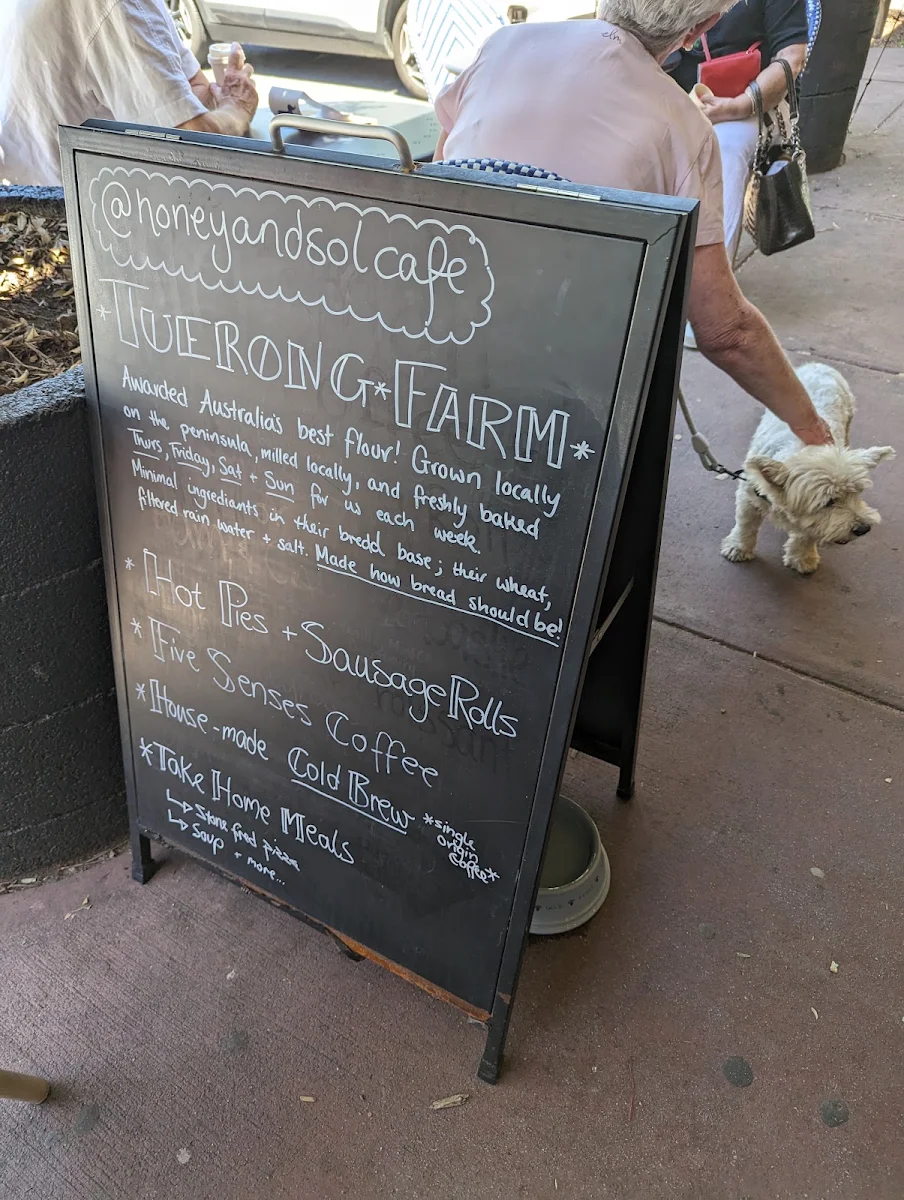 @honeyandsolcafe
*TUERONG*FARM*
Awarded Australia's best flour! Grown locally
on the peninsula, milled locally, and freshly baked
Thurs, Friday, Sat + Sun for us each week.
Minimal ingredients in their bread base; their wheat,
filtered rain water + salt. Made how bread should be!
* Hot Pies + Sausage Rolls
* Five Senses Coffee
* House-made Cold Brew
*single
origin
coffee*
*Take Home Meals
↳ Stone fired pizza
↳ Soup + more...